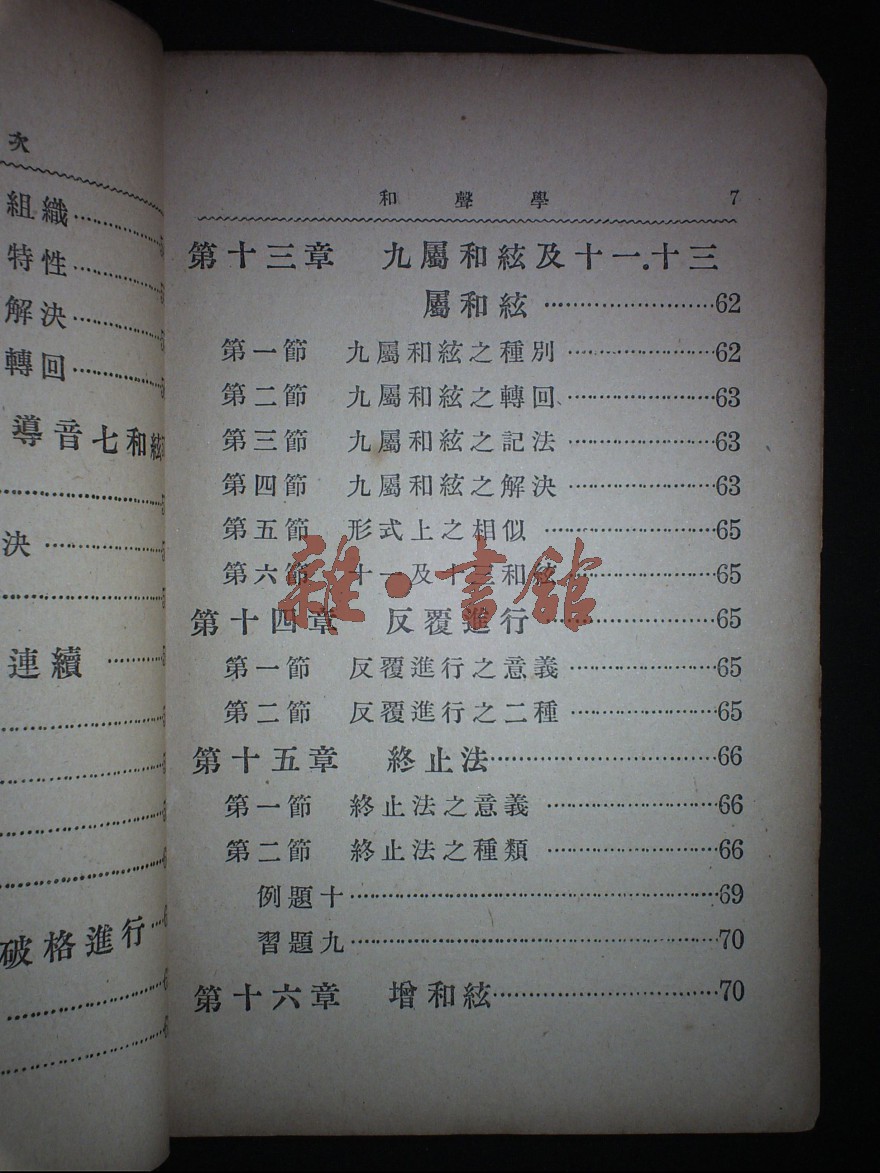 次
組織
特性
解決
轉回
導音七和絃
決
連續
破格進行
和聲學 7
第十三章 九屬和絃及十一.十三
屬和絃 62
第一節 九屬和絃之種別 62
第二節 九屬和絃之轉回 63
第三節 九屬和絃之記法 63
第四節 九屬和絃之解決 63
第五節 形式上之相似 65
第六節 十一及十三和絃 65
第十四章 反覆進行 65
第一節 反覆進行之意義 65
第二節 反覆進行之二種 65
第十五章 終止法 66
第一節 終止法之意義 66
第二節 終止法之種類 66
例題十 69
習題九 70
第十六章 增和絃 70
雜·書館